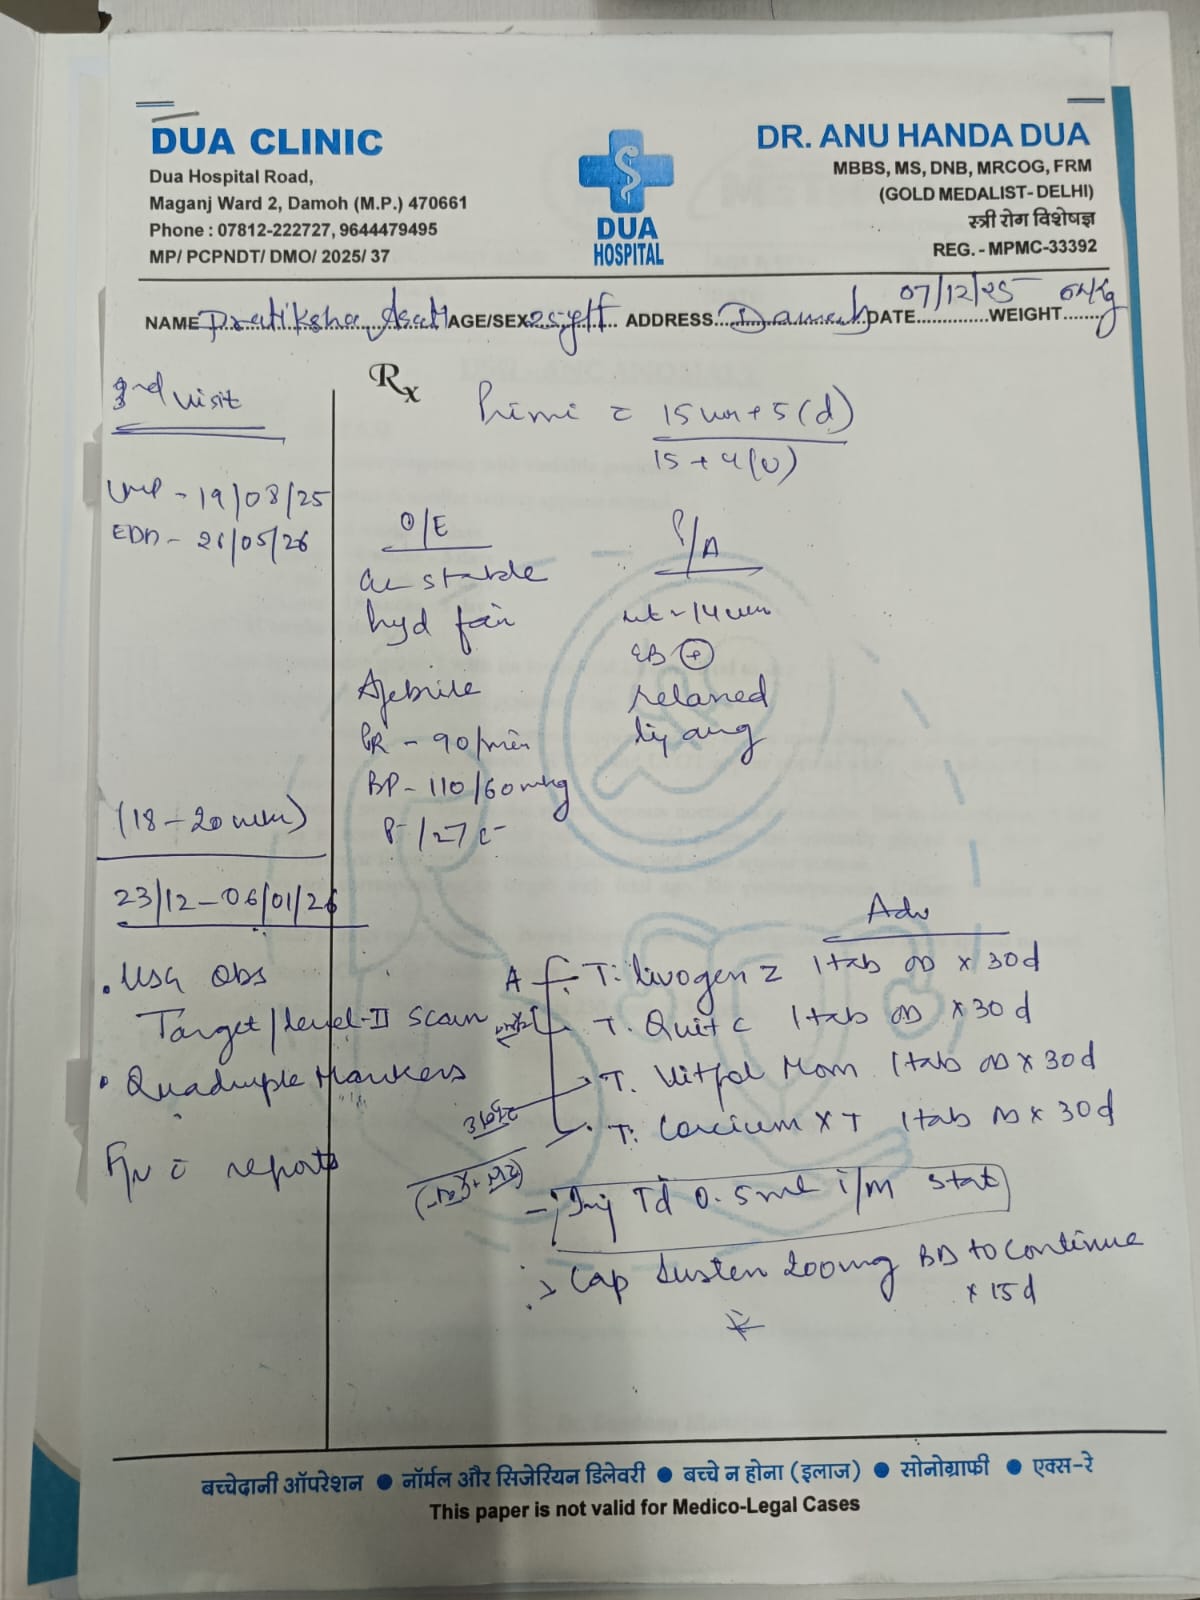 DUA CLINIC
Dua Hospital Road,
Maganj Ward 2, Damoh (M.P.) 470661
Phone : 07812-222727, 9644479495
MP/ PCPNDT/ DMO/ 2025/ 37
DUA
HOSPITAL
DR. ANU HANDA DUA
MBBS, MS, DNB, MRCOG, FRM
(GOLD MEDALIST- DELHI)
स्त्री रोग विशेषज्ञ
REG. - MPMC-33392
NAME Pratiksha Asati AGE/SEX 25y/f ADDRESS Damoh DATE 07/12/25 WEIGHT
visit
Rx
Primi 15 + 5 (d)
15 + 4 (U)
LMP - 19/08/25
EDD - 26/05/26
O/E
stable
hyd fair
Afebrile
PR - 90/min
BP - 110/60 mmhg
P/A
14
EB +
relaxed
(18 - 20
23/12 - 06/01/26
. USG Obs
Target/level-II scan
• Quadruple Markers
reports
Adv
T. livogen Z 1 tab OD x 30d
T. Quit C 1 tab OD x 30d
T. Vitfol Mom 1 tab OD x 30d
T. Calcium XT 1 tab OD x 30d
Inj Td 0.5ml i/m stat
Cap Susten 200mg BD to continue
x 15d
बच्चेदानी ऑपरेशन ● नॉर्मल और सिजेरियन डिलेवरी ● बच्चे न होना (इलाज) ● सोनोग्राफी ● एक्स-रे
This paper is not valid for Medico-Legal Cases